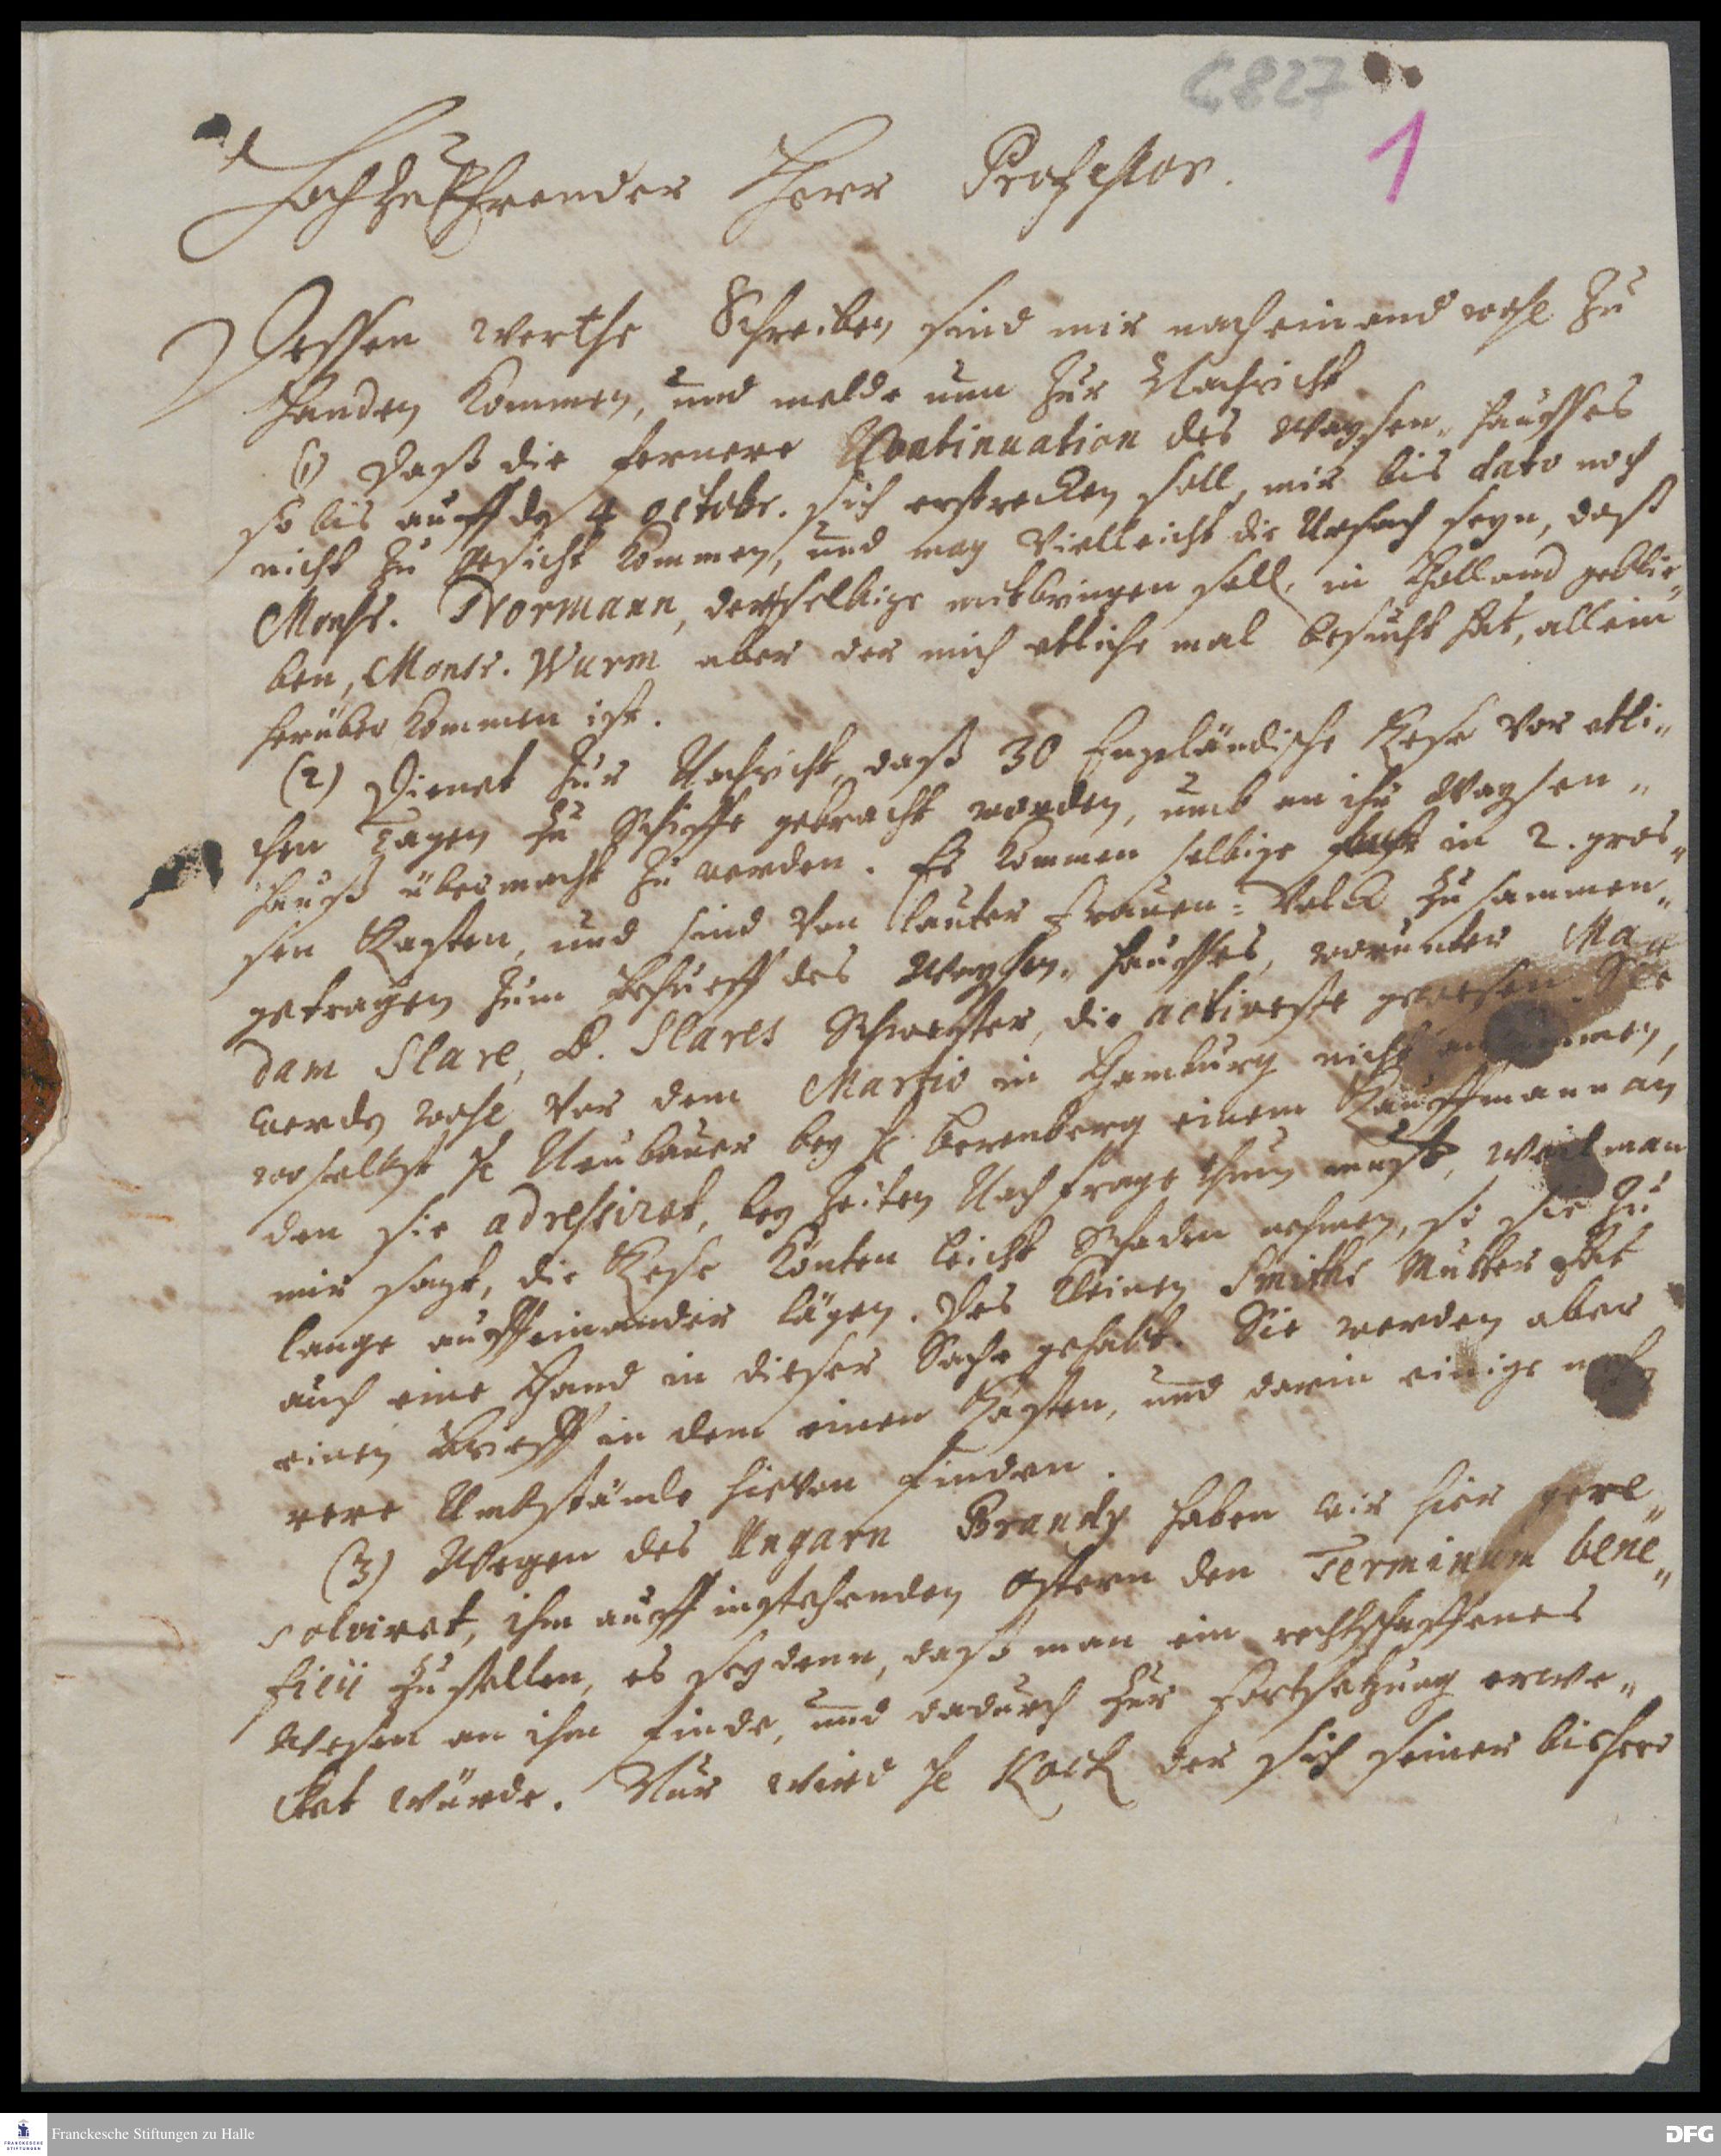 C827
1
HochzuEhrender Herr Professor.
Dessen werthe Schreiben sind mir nach einand wohl zu
Handen kommen, und melde nun zur Nachricht
(1) daß die fernere Continuation des Waysen„hausses
so bis auff dẽ 4 octobr. sich erstrecken soll, mir bis dato noch
nicht zu gesicht kommen, und mag vielleicht die Ursach seyn, daß
Monsr. Normann, der selbige mitbringen soll, in Holland geblie„
ben, Monsr. Wurm aber der mich etliche mal besucht hat, allein
herüber kommen ist.
(2) Dienet zur Nachricht, daß 30 Engeländische Kese vor etli„
chen Tagen zu Schiffe gebracht worden, umb an ihr Waysen„
hauß übermacht zu werden. Es kommen selbige in 2. gros„
sen Kasten, und sind von lauter Frauen=Volck zusammen„
getragen zum behueff des Waysen„hausses, worunter Ma„
dam Slare, D. Slares Schwester, die activeste gewesen. Sie
werdẽ wohl vor dem Martio in Hamburg nicht ankommen,
woselbst H Neubauer bey H Berenberg einem Kauffmann an
den sie adressiret, bey Zeiten Nachfrage thun muß, weil man
mir sagt, die Kese könten leicht Schaden nehmen, so sie zu
lange auffeinander lägen. Des kleinen Smiths Mutter hat
auch eine Hand in dieser Sache gehabt. Sie werden aber
einen Brieff in dem einen Kasten, und darin einige meh„
rere Umbstände hievon finden.
(3) Wegen des Ungarn Brandy haben wir hier gere„
solviret, ihm auff instehenden Ostern den Terminum bene„
ficii zustellen, es sey denn, daß man ein rechtschaffenes
Wesen an ihm finde, und dadurch zur Fortsetzung erwe„
cket würde. Nur wird H Kock der sich seiner bishero
Franckesche Stiftungen zu Halle
FRANCKESCHE
STIFTUNGEN
DFG